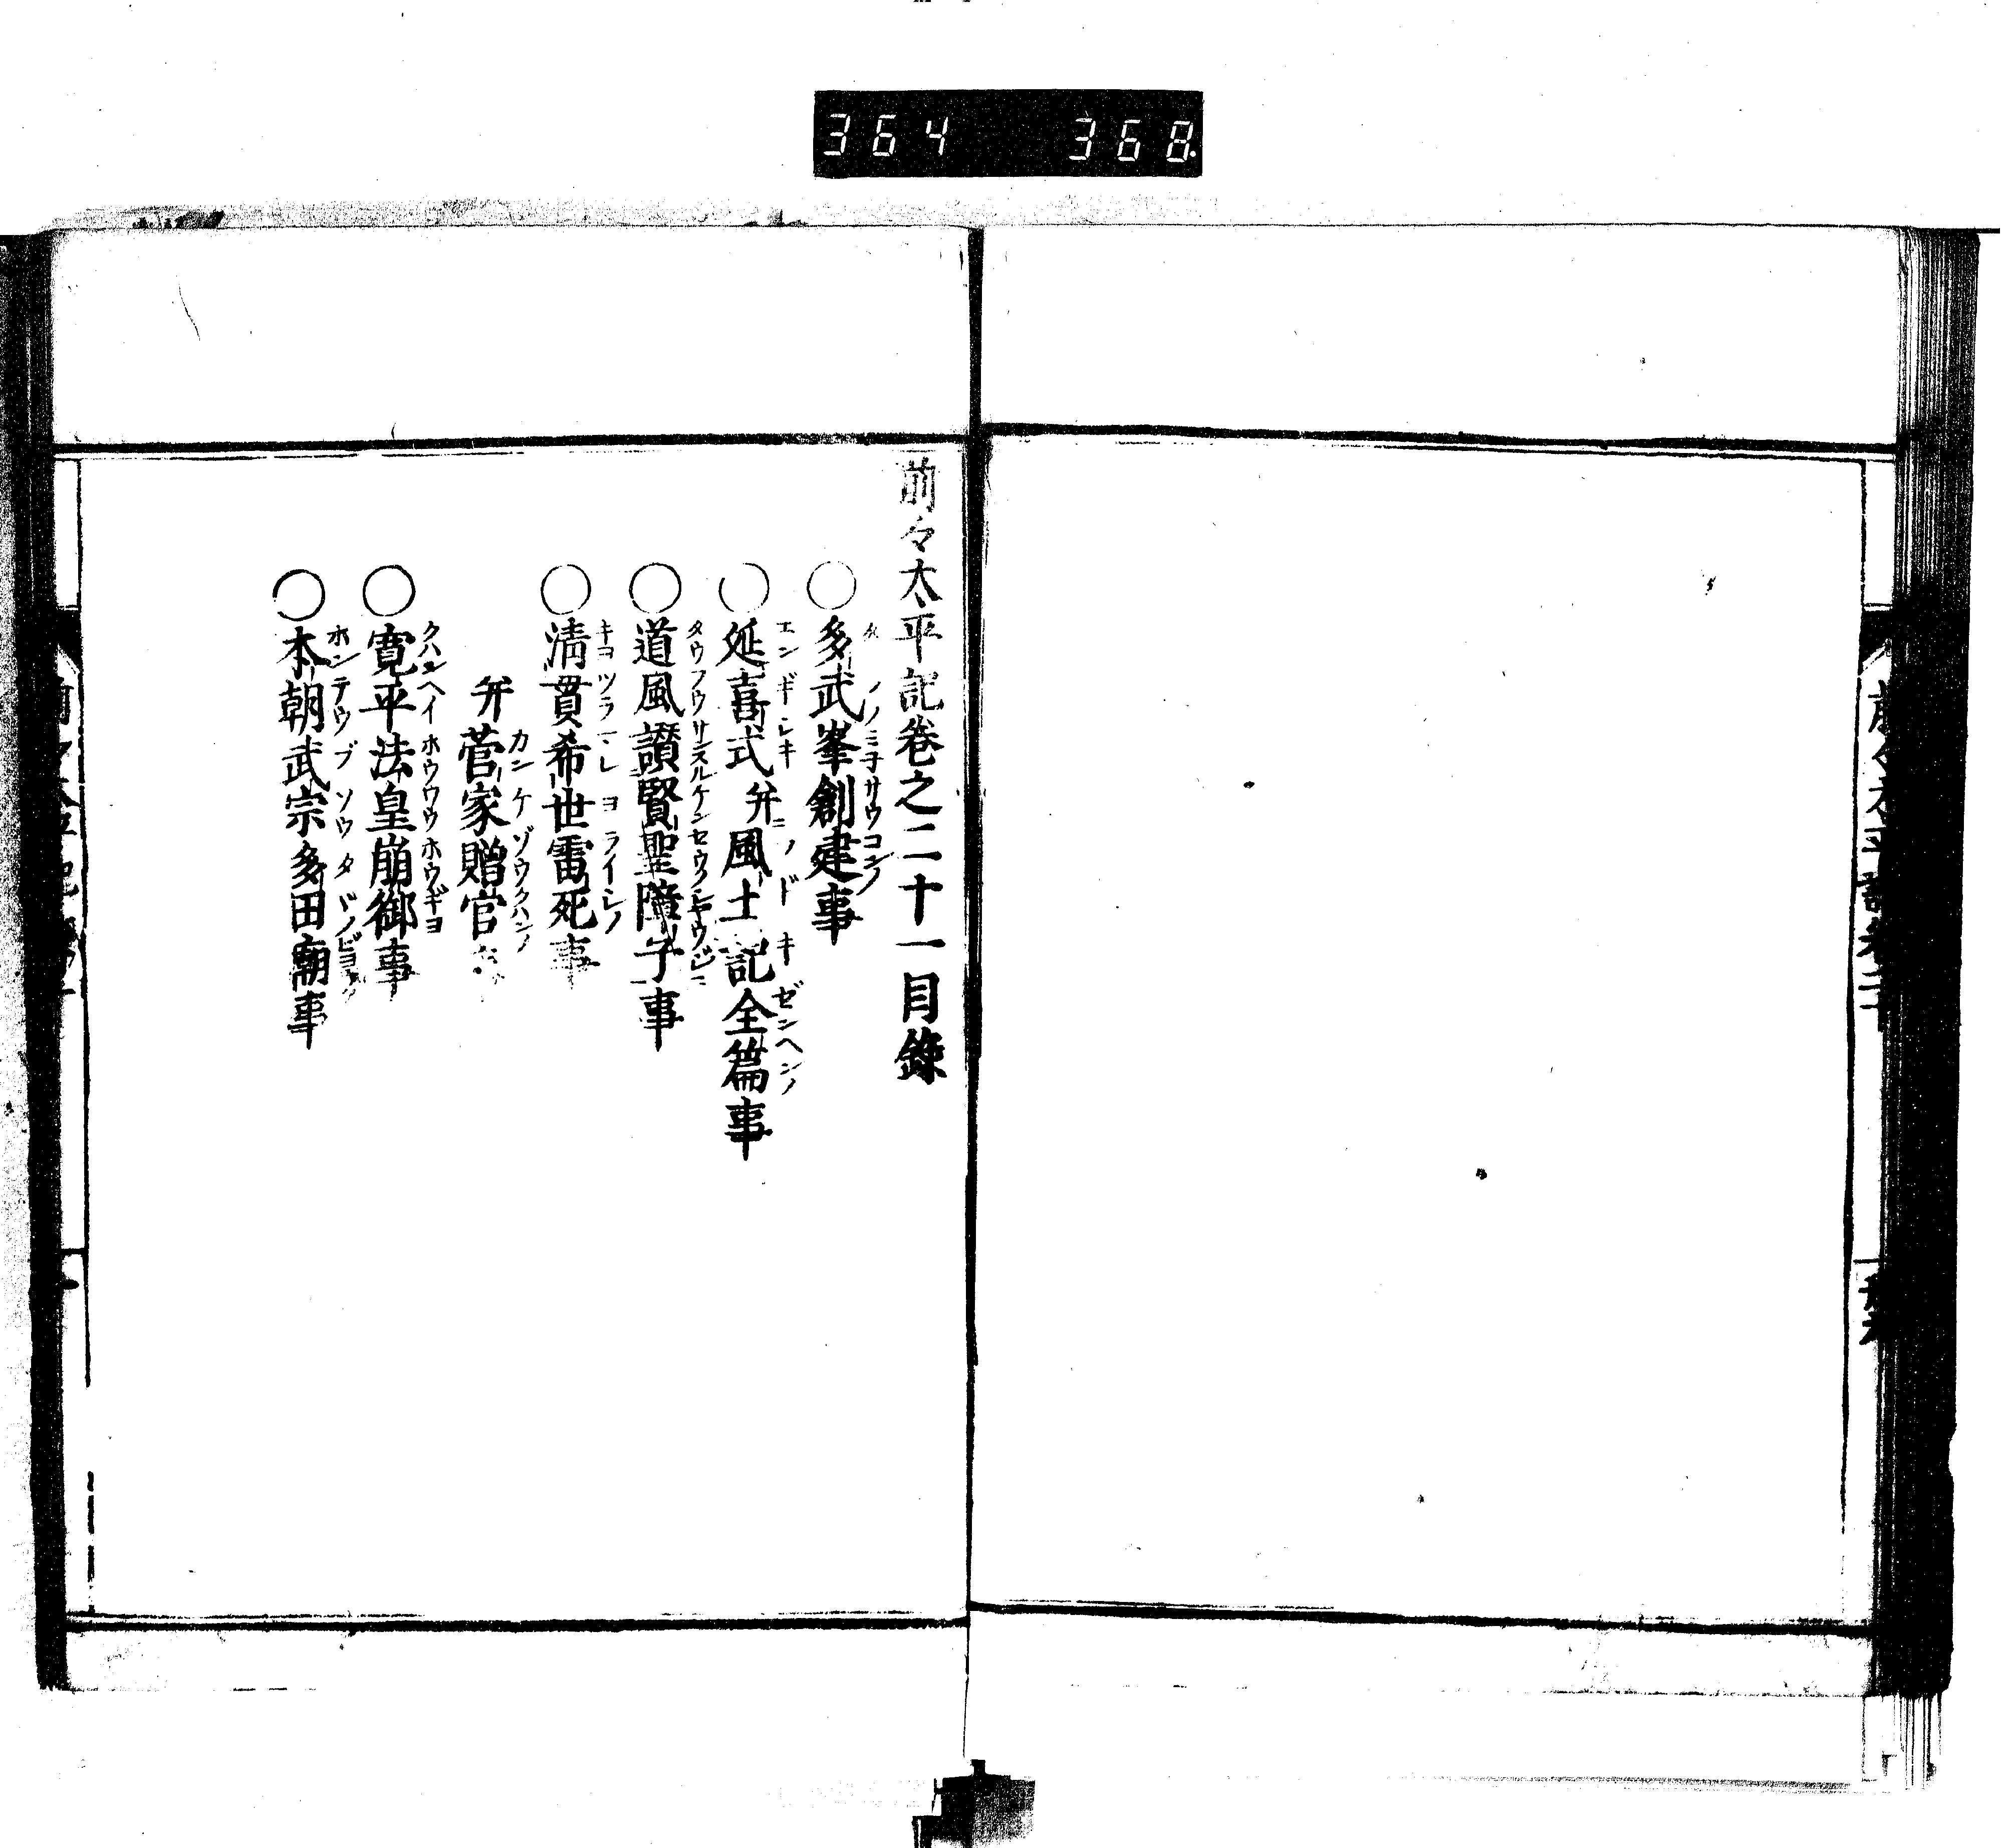 364 368
前々太平記巻之二十一目録
○多武峯創建事
○延喜式并風土記全篇事
○道風讃賢聖障子事
○清貫希世雷死事
并菅家贈官事
○寛平法皇崩御事
○本朝武宗多田廟事